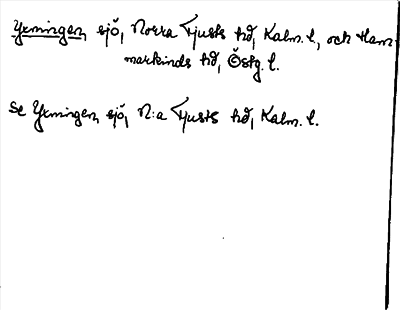 Yxningen, sjö, Norra Tjusts hd, Kalm. l., och Ham-
markinds hd, Östg. l.
Se Yxningen, sjö, N:a Tjusts hd, Kalm. l.